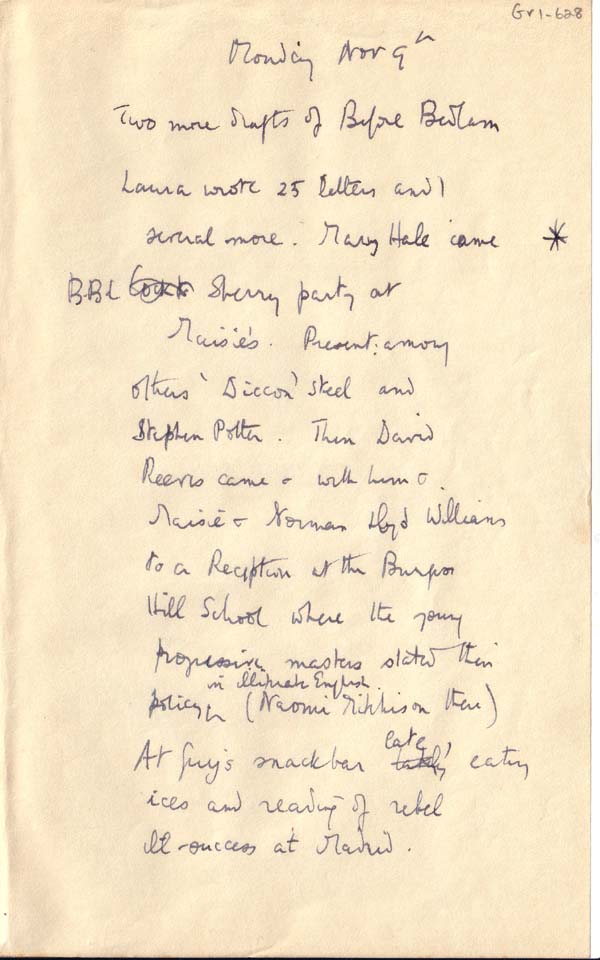 Gr1-628
Monday Nov 9th
Two more drafts of Before Bedlam
Laura wrote 25 letters and I
several more. Mary Hale came *
B.B.L Sherry party at
Maisie's. Present: among
others 'Diccon' Steel and
Stephen Potter. Then David
Reeves came & with him &
Maisie & Norman Lloyd Williams
to a Reception at the Burgess
Hill School where the young
progressive masters stated their
in illiterate English.
policy (Naomi Mitchison there)
late
At Guy's snackbar eating
ices and reading of rebel
ill-success at Madrid.